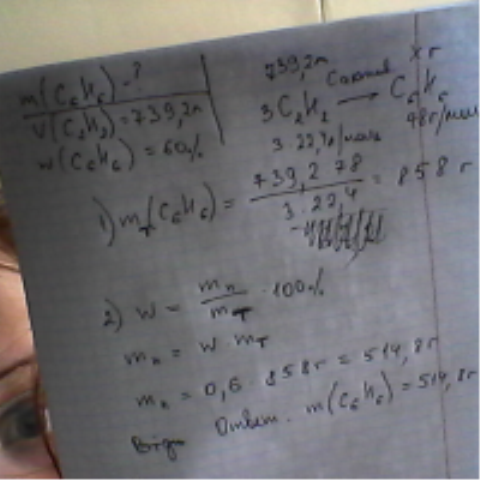 m(C₆H₆) - ?
V(C₂H₂) = 739,2л
w(C₆H₆) = 60%
739,2л xг
3C₂H₂ → C₆H₆
3·22,4л/моль 78г/моль
1) mт(C₆H₆) = 739,2·78 / 3·22,4 = 858 г
2) w = mп / mт · 100%
mп = w · mт
mп = 0,6 · 858г = 514,8г
Ответ. m(C₆H₆) = 514,8г